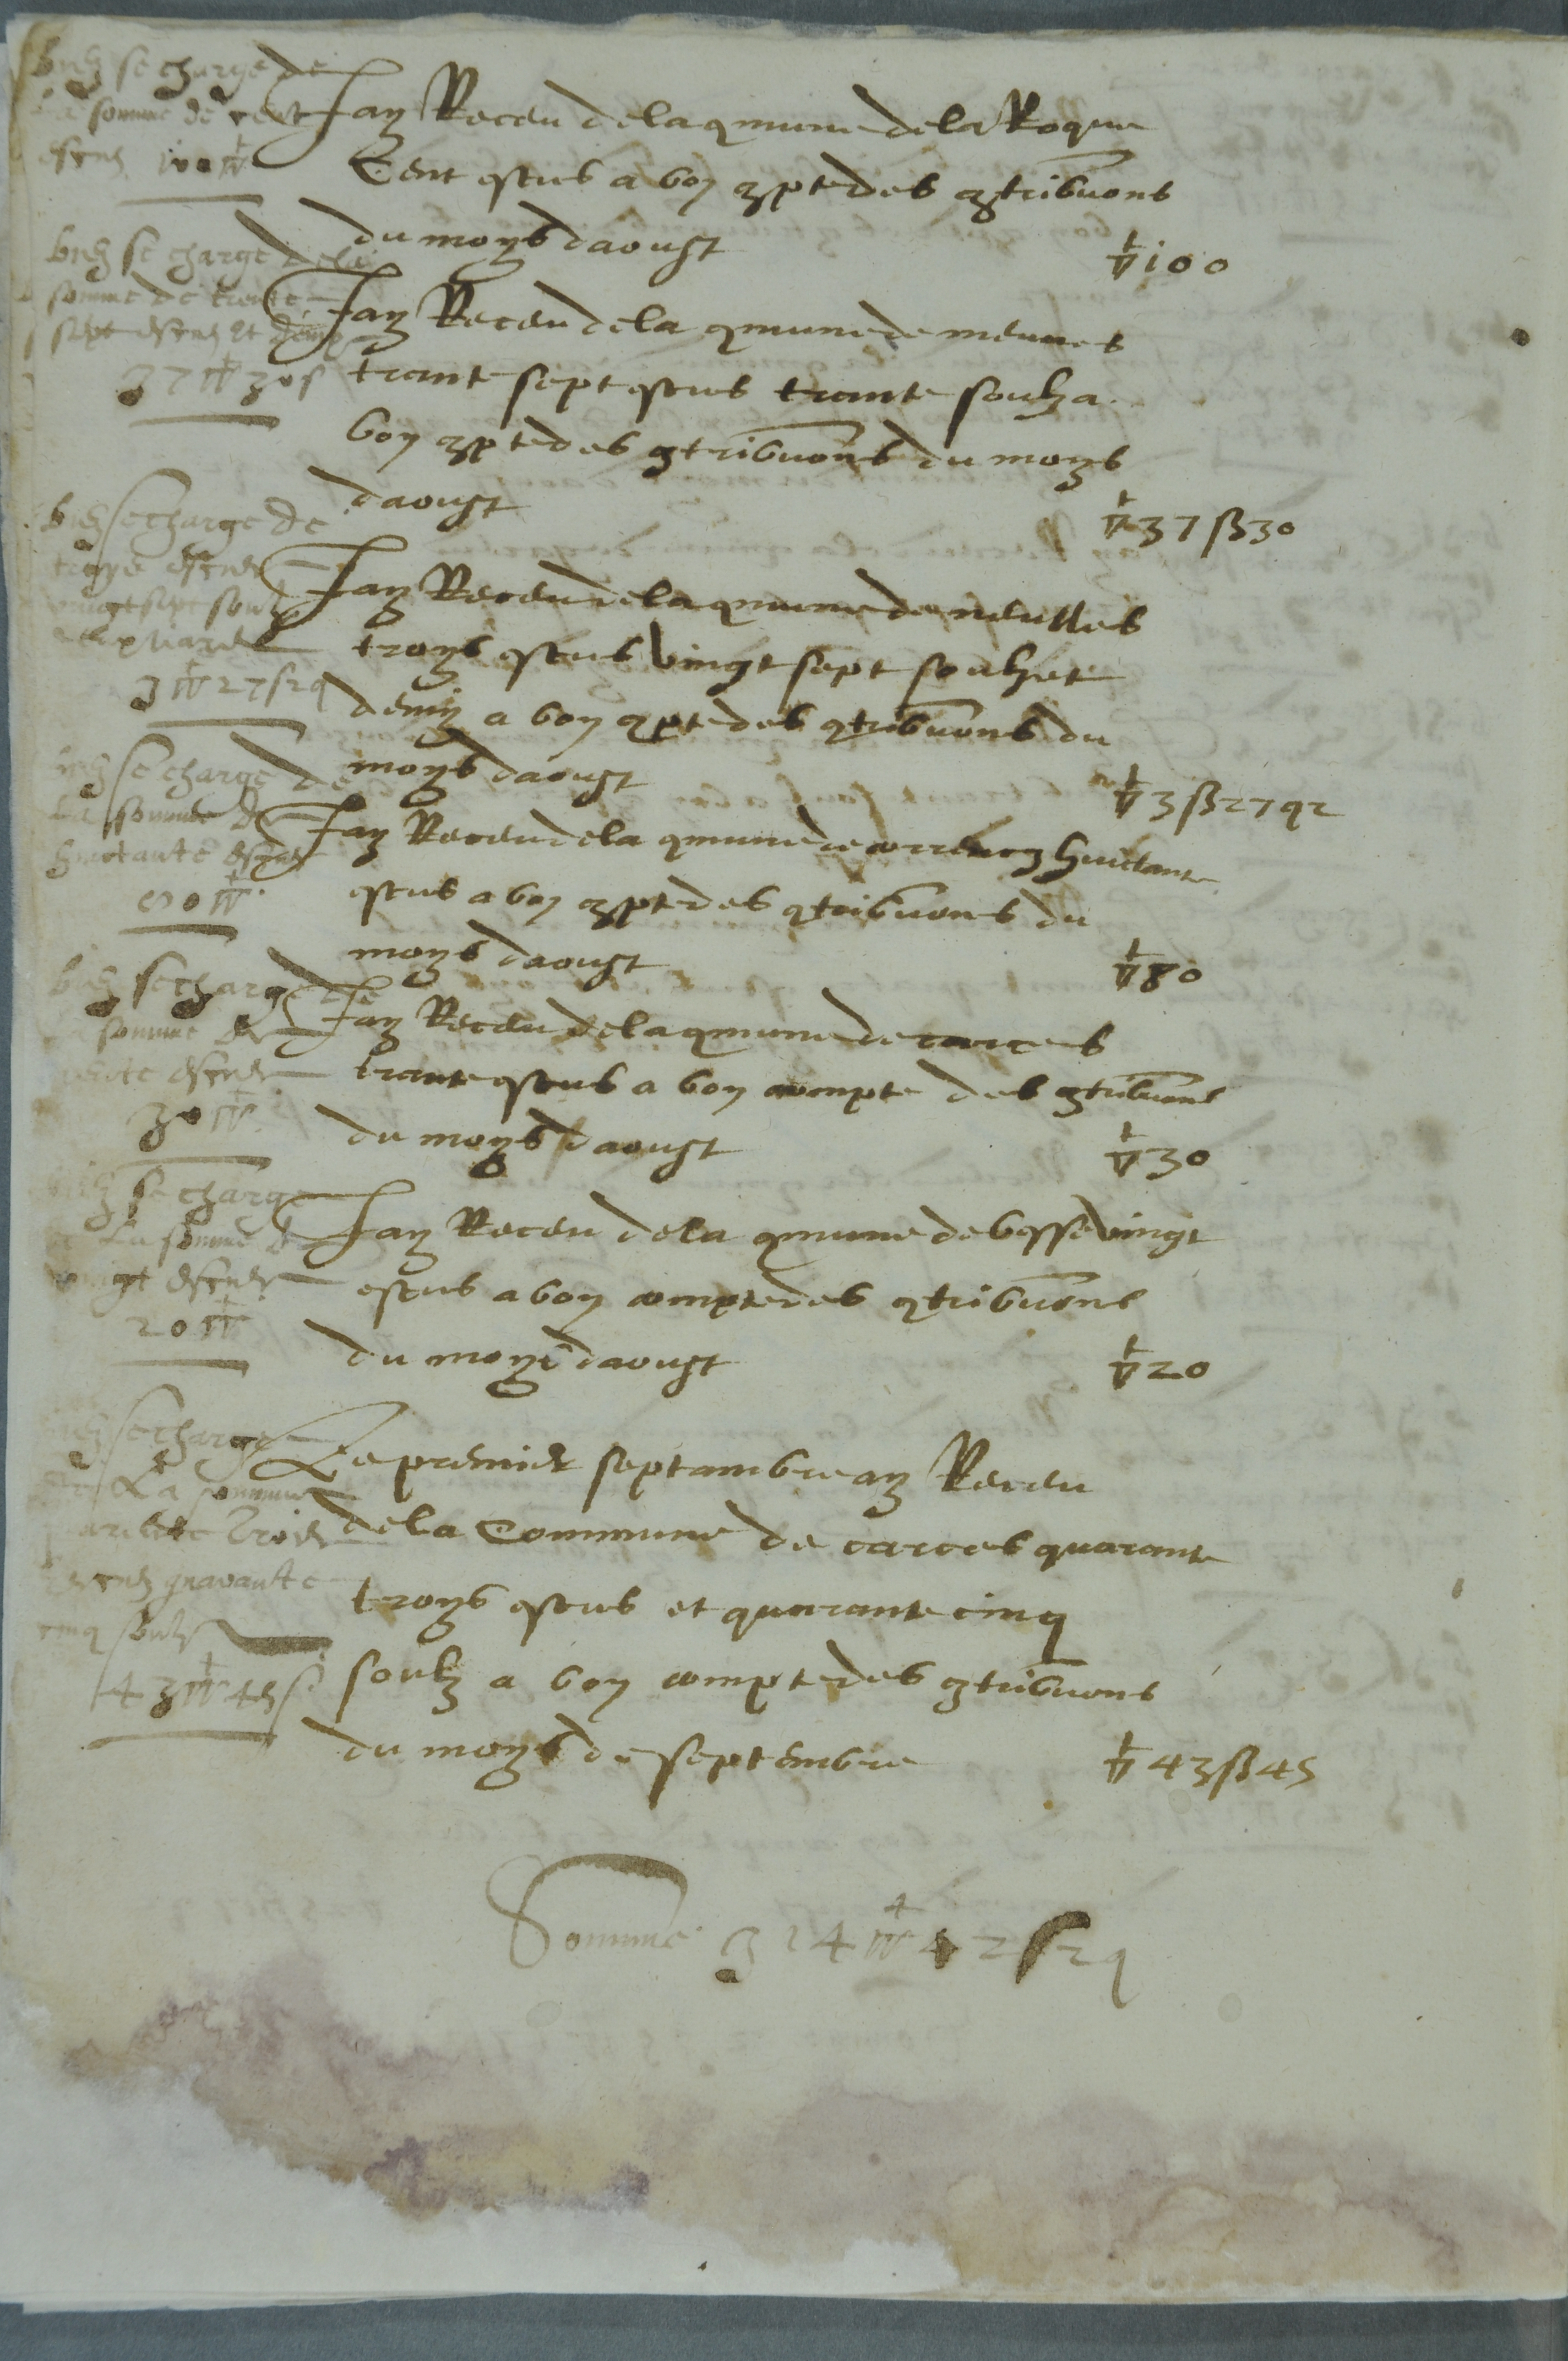 se charge de
la somme de cent
escus 100 ▽
Jay Receu de la qmune de la Roque
Cent escus a bon qpte des qtribuons
du moys daoust ▽ 100
se charge de la
somme de trente
sept escus et demy
37 ▽ 30 s
Jay Receu de la qmune de
trante sept escus trante soulz a
bon qpte des qtribuons du moys
daoust ▽ 37 ß 30
se charge de
troys escus
vingt sept soulz
3 ▽ 27 s 2 q
Jay Receu de la qmune de neulles
troys escus vingt sept soulz et
demy a bon qpte des qtribuons du
moys daoust ▽ 3 ß 27 q 2
se charge de
la somme de
huictante escus
80 ▽
Jay Receu de la qmune de correns huictante
escus a bon qpte des qtribuons du
moys daoust ▽ 80
se charge de
la somme de
trente escus
30 ▽
Jay Receu de la qmune de carces
trante escus a bon compte des qtribuons
du moys daoust ▽ 30
se charge
de la somme de
vingt escus
20 ▽
Jay Receu de la qmune de besse vingt
escus a bon compte des qtribuons
du moys daoust ▽ 20
se charge
de La somme
quarante troys
escus quarante
cinq soulz
43 ▽ 45 s
Le premier septambre ay Receu
de la Commune de carces quarante
troys escus et quarante cinq
soulz a bon compte des qtribuons
du moys de septembre ▽ 43 ß 45
Somme 314 ▽ 42 s 2 q